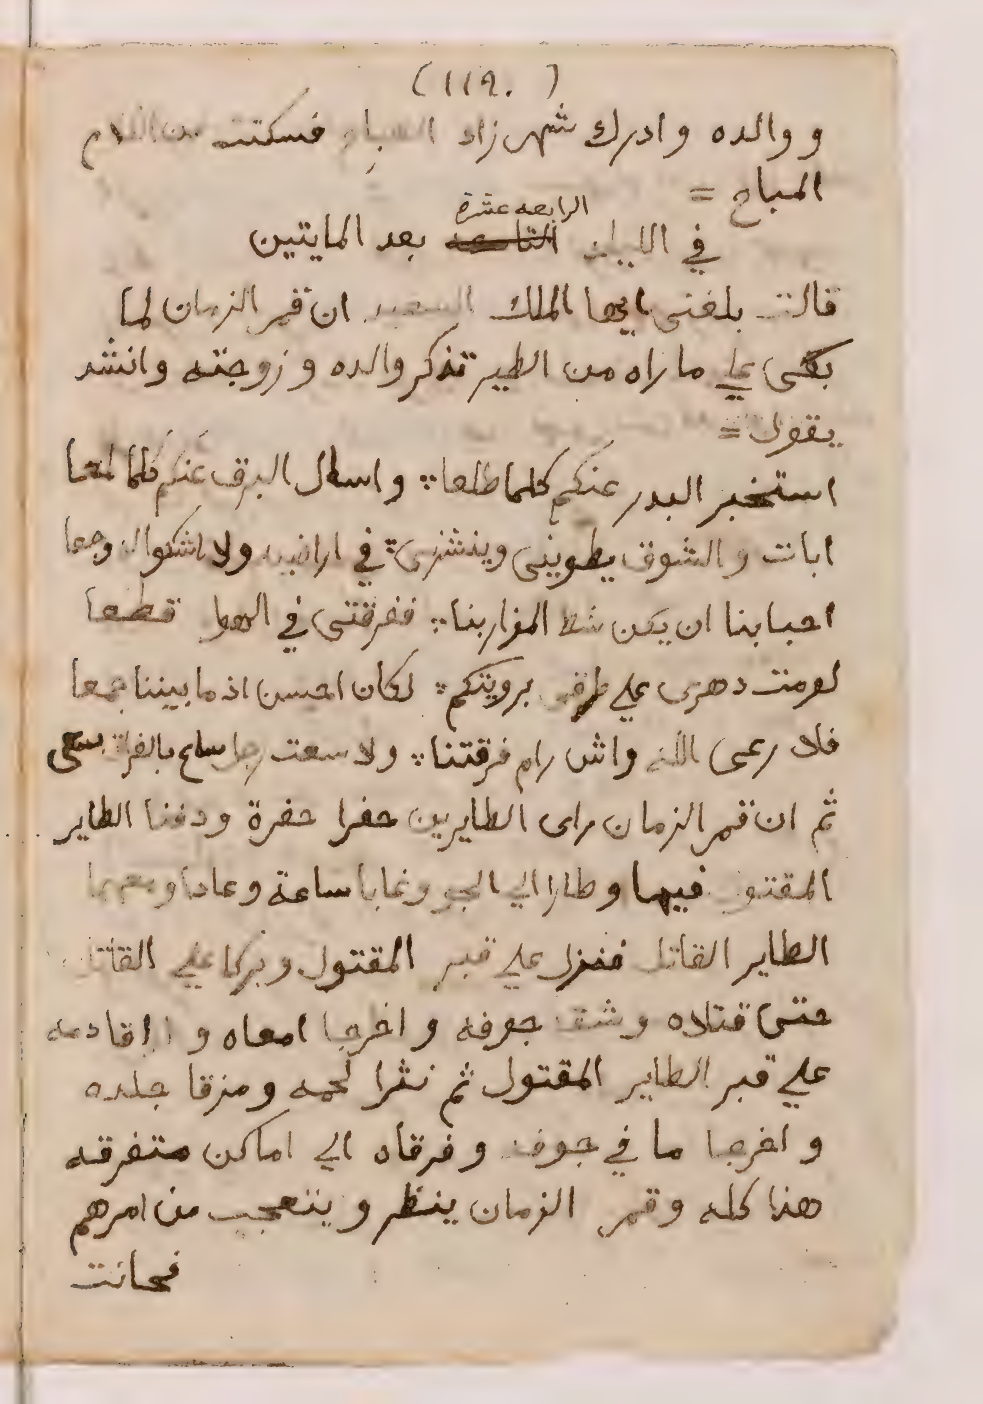 (١١٩٠)
ووالده وادرك شهرزاد الصباح فسكتت عن الكلام
المباح =
الرابعه عشرة
في الليله التاسعه بعد المايتين
قالت بلغني ايها الملك السعيد ان قمر الزمان لما
بكي علي ماراه من الطير تذكر والده وزوجته وانشد
يقول =
استخبر البدر عنكم كلما طلعا ∴ واسال البرق عنكم كلما لمعا
ابات والشوق يطويني وينشرني ∴ في ولا اشكوا له وجعا
احبابنا ان يكن شط المزار بنا ∴ ففرقتي في الهوا قطعا
لو منت دهري علي طرفي برويتكم ∴ لكان احسن اذ ما بيننا جمعا
فلا رعى الله واش رام فرقتنا ∴ ولا سعت رجل ساع بالفراق سعى
ثم ان قمر الزمان راى الطايرين حفرا حفرة ودفنا الطاير
المقتول فيها وطارا الي الجو وغابا ساعة وعادا ومعهما
الطاير القاتل فنزل علي قبر المقتول وبركا علي القاتل
حتى قتلاه وشقا جوفه واخرجا امعاه و اراقا دمه
علي قبر الطاير المقتول ثم نثرا لحمه ومزقا جلده
واخرجا ما في جوفه وفرقاه الي اماكن متفرقه
هذا كله وقمر الزمان ينظر ويتعجب من امرهم
فحانت